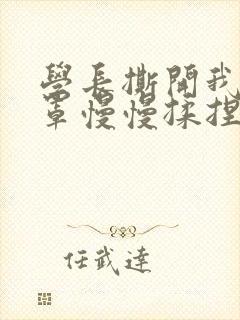 學長撕開我
罩慢慢揉捏
任武達